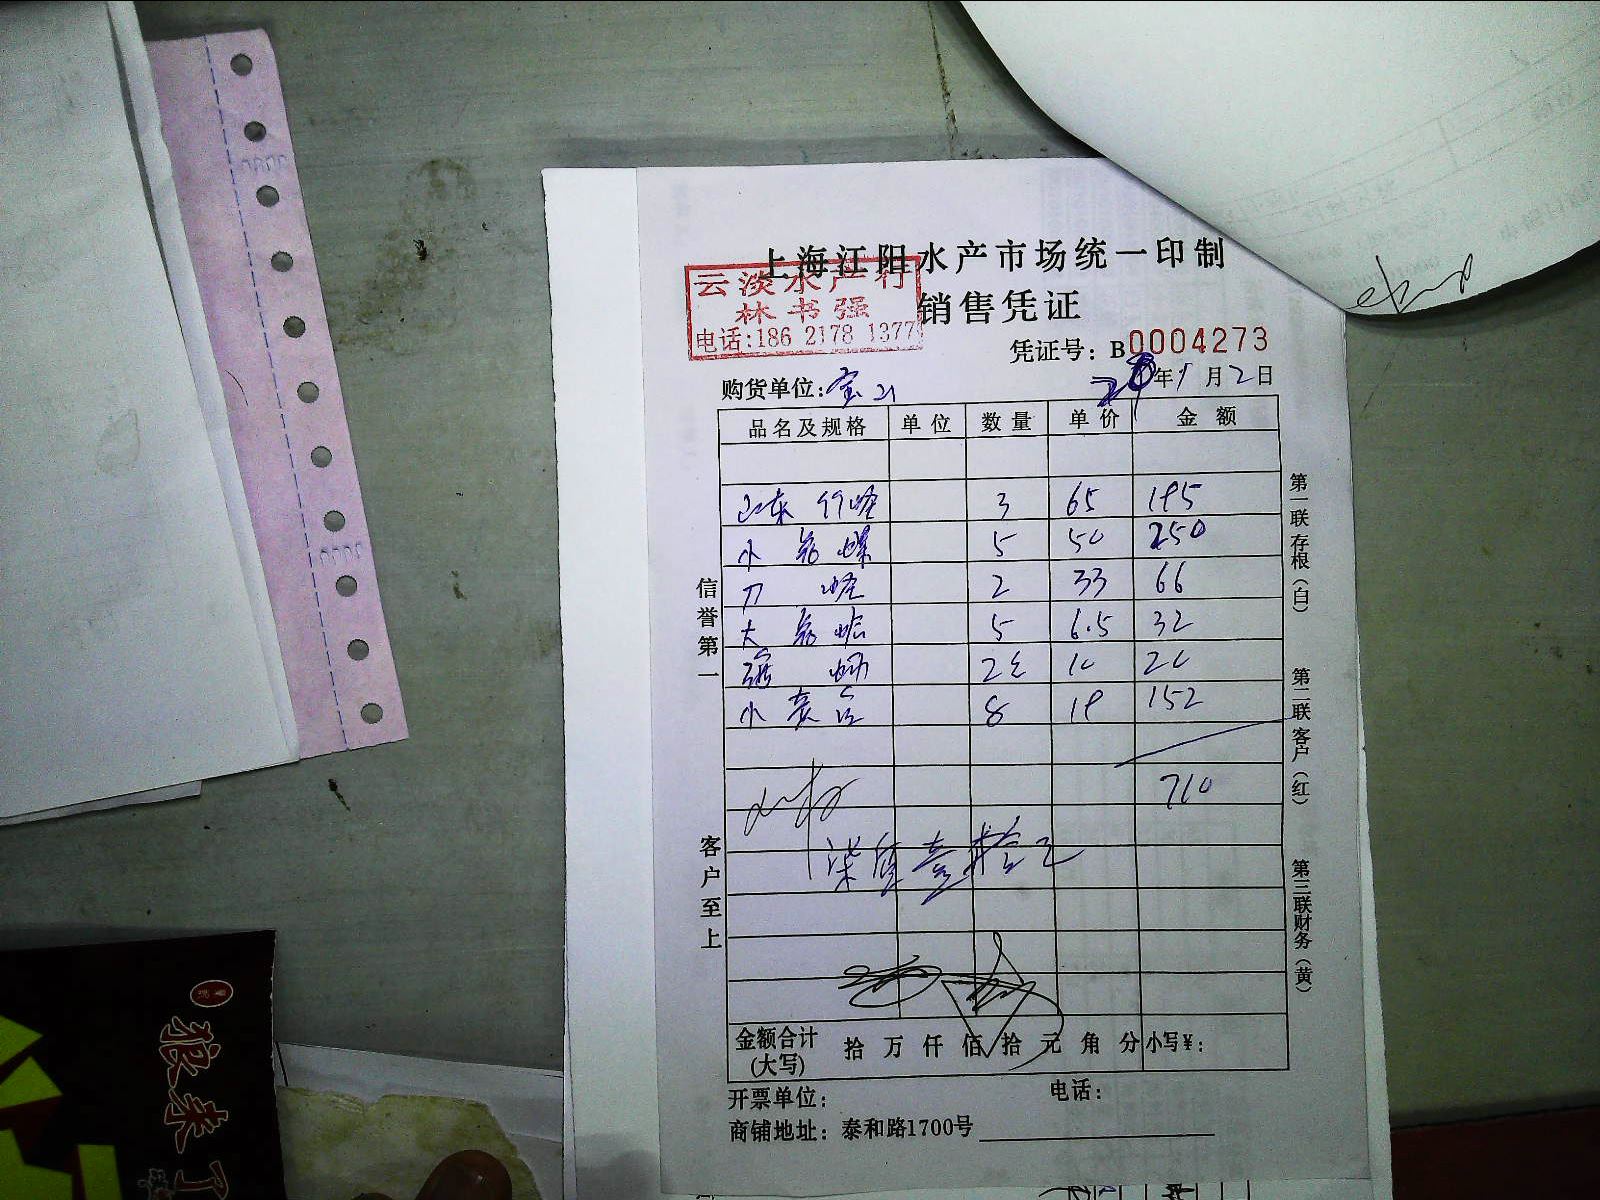 上海江阳水产市场统一印制
云淡水产行
林书强
电话:186 2178 1377
销售凭证
凭证号：B0004273
购货单位：宝
年 月 2 日
品名及规格 单位 数量 单价 金额
山东 竹蛏 3 65 195
小 鲍 螺 5 50 250
刀 蛏 2 33 66
大 蛤 5 6.5 32
2 10
小 8 19 152
710
柒佰壹拾元
金额合计(大写) 拾 万 仟 佰 拾 元 角 分 小写¥:
开票单位： 电话：
商铺地址：泰和路1700号
信誉第一
客户至上
第一联存根（白）
第二联客户（红）
第三联财务（黄）
狼来了